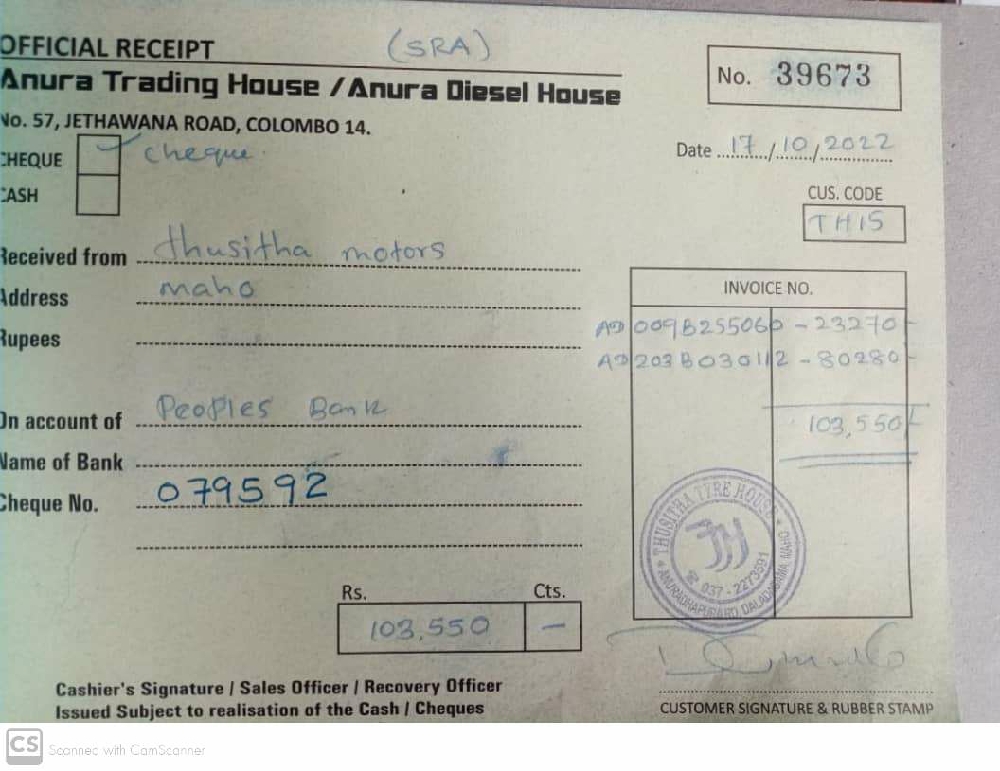 OFFICIAL RECEIPT (SRA)
Anura Trading House / Anura Diesel House
No. 39673
No. 57, JETHAWANA ROAD, COLOMBO 14.
CHEQUE cheque.
Date 17/10/2022
CASH
CUS. CODE
THIS
Received from thusitha motors
Address maho
INVOICE NO.
Rupees
AD 009B255060 - 23270/-
AD 203B030112 - 80280/-
On account of Peoples Bank
103,550/-
Name of Bank
Cheque No. 079592
THUSITHA TYRE HOUSE
037 - 2273591
Rs. Cts.
103,550 -
Cashier's Signature / Sales Officer / Recovery Officer
Issued Subject to realisation of the Cash / Cheques
CUSTOMER SIGNATURE & RUBBER STAMP
CS Scanned with CamScanner